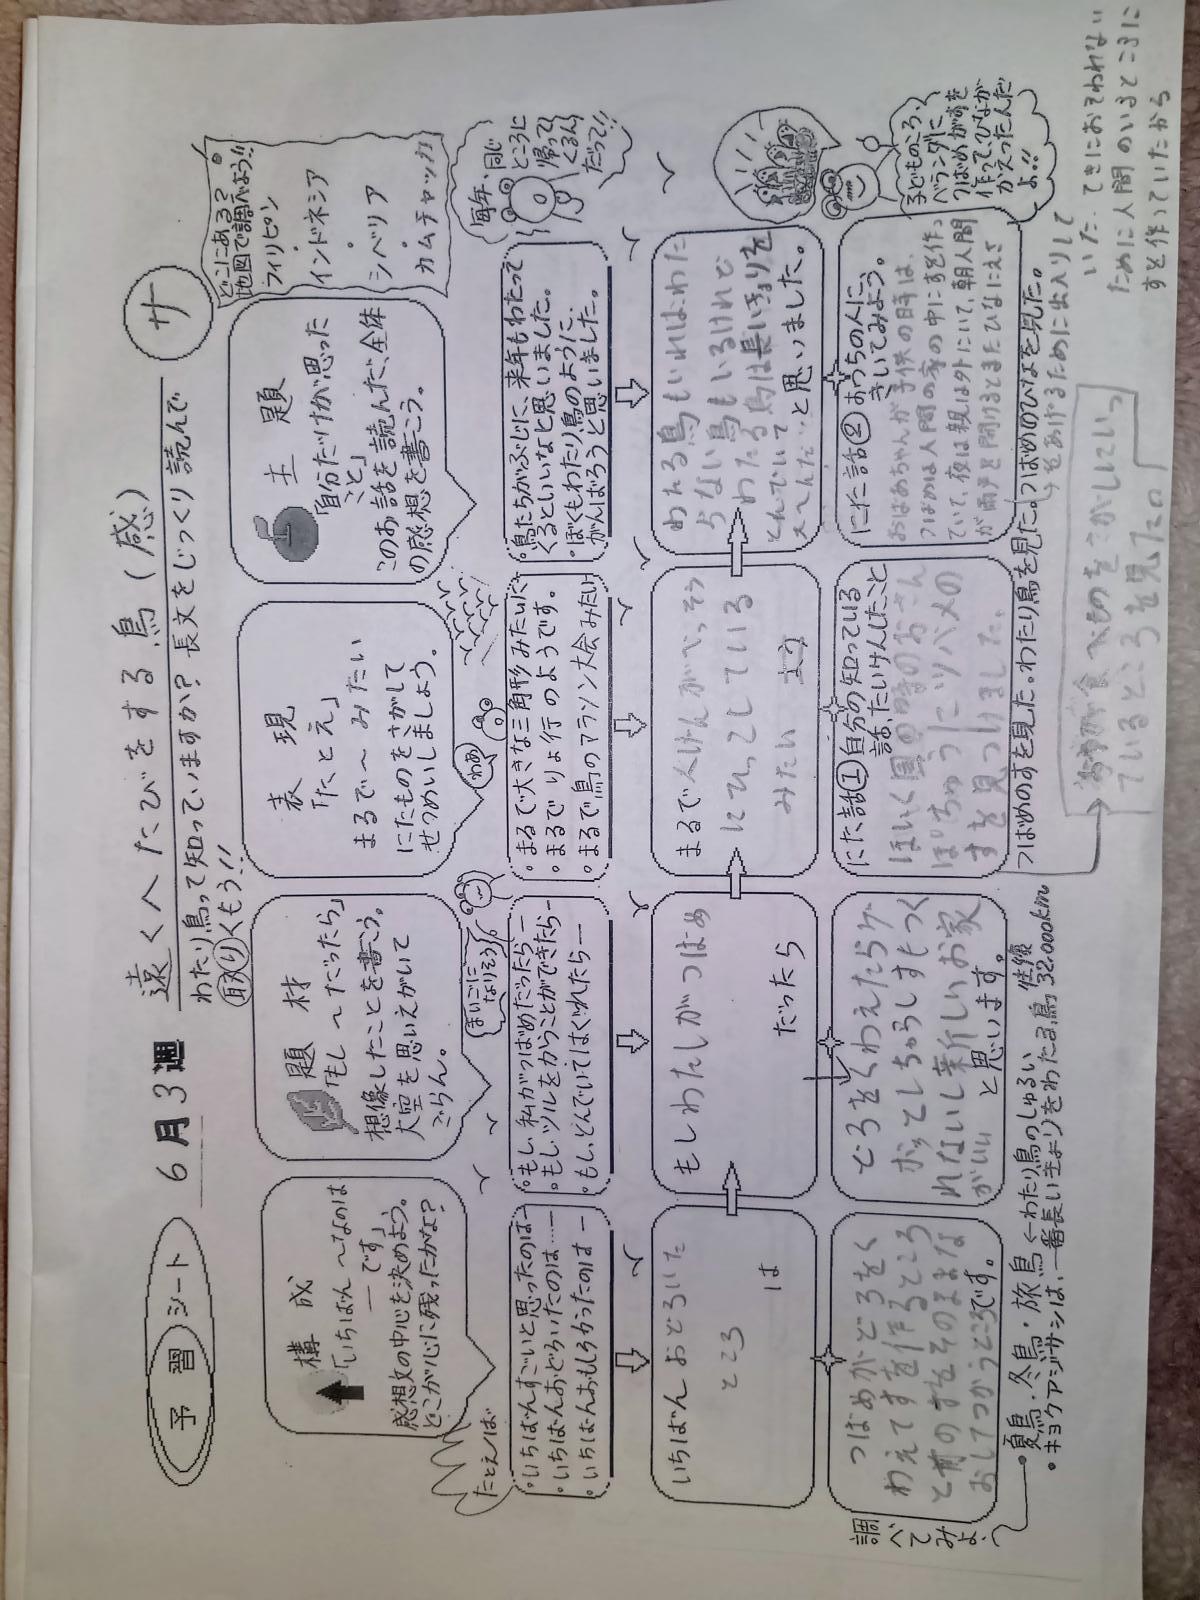 予習シート
6月3週
遠くへたびをする鳥(感)
サ
わたり鳥って知っていますか?長文をじっくり読んで
取りくもう!!
どこにある?
地図で調べよう!!
フィリピン
・インドネシア
・シベリア
・カムチャッカ
構成
「いちばん〜なのは
―です」
感想文の中心を決めよう。
どこが心に残ったかな?
題材
「もし〜だったら」
想像したことを書こう。
大空を思いえがいて
ごらん。
表現
「たとえ」
まるで〜みたい
にたものをさがして
せつめいしましょう。
主題
「自分だけが思った
こと」
このお話を読んだ、全体
の感想を書こう。
たとえば
まいごに
なりそう
わあ
毎年、同じ
ところに
帰って
くるん
だって!!
・いちばんすごいと思ったのは―
・いちばんおどろいたのは……
・いちばんおもしろかったのは―
・もし、私がつばめだったら―
・もし、ツルをかうことができたら―
・もし、とんでいてはぐれたら―
・まるで大きな三角形みたいに
・まるでりょ行のようです。
・まるで鳥のマラソン大会みたい
・鳥たちがぶじに、来年もわたって
くるといいなと思いました。
・ぼくもわたり鳥のように、
がんばろうと思いました。
いちばんおどろいた
ところ
は
もしわたしがつばめ
だったら
まるで人げんがひっこ
しているみたい
わたる鳥もいればわた
らない鳥もいるけれど
わたる鳥は長いきょりを
とんでいて
と思いました。
調べてみよ
つばめがどろをく
わえてすを作るところ
と前のすをそのままな
おしてつかうところです。
どろをくわえたらゲ
ボッてしちゃうしすもつく
れないし新しいお家
がいい
と思います。
にた話① 自分の知っている
話、たいけんしたこと
ほいく園の時のおさん
ぽちゅうにツバメの
すを見つけました。
にた話② おうちの人に、
きいてみよう。
おばあちゃんが子供の時は、
つばめは人間の家の中にすを作っ
ていて、夜は親は外にいて、朝人間
が雨戸を開けるとまたひなにえさ
をあげるために出入りして
いた。てきにおそわれない
ために人間のいるところに
すを作っていたから
子どものころ、
ベランダに、
つばめがすを
作って、ひなが
かえったんだ
よ!!
・夏鳥・冬鳥・旅鳥←わたり鳥のしゅるい
・キョクアジサシは、一番長いきょりをわたる鳥 往復32,000km
つばめのすを見た。わたり鳥を見た。つばめのひなを見た。
食べものをさがしにいっ
ているところを見た。